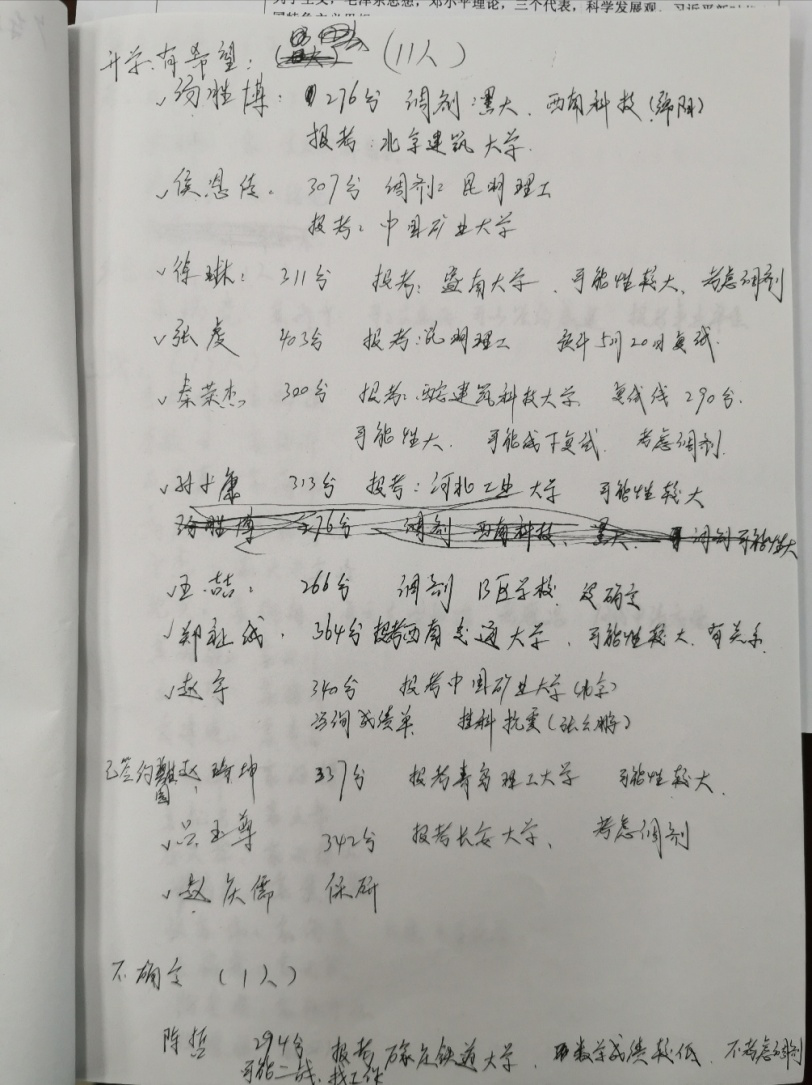 列宁主义，毛泽东思想，邓小平理论，三个代表，科学发展观，习近平新时代
国特色主义思想
升学有希望：（11人）
胜博：276分 调剂：黑大、西南科技（绵阳）
报考：北京建筑大学.
侯恩佳. 307分 调剂：昆明理工
报考：中国矿业大学
徐琳：311分 报考：暨南大学、可能性较大、考虑调剂
张虔 403分 报考：昆明理工 预计5月20日复试.
秦荣杰 300分 报考：西安建筑科技大学 复试线290分.
可能性大. 可能线下复试. 考虑调剂.
康 313分 报考：河北工业大学 可能性较大
胜博 276分 调剂 西南科技、黑大、调剂可能性大
王喆：266分 调剂 B区学校 没确定
郑社成. 364分 报考西南交通大学、可能性较大、有关系.
赵宇 340分 报考中国矿业大学（北京）
咨询成绩单 挂科抗震（张会鹏）
已签约 赵 坤 337分 报考青岛理工大学 可能性较大.
吕玉尊 342分 报考长安大学、考虑调剂
赵庆儒 保研
不确定（1人）
陈哲 294分 报考石家庄铁道大学、数学成绩较低、不考虑调剂
可能二战、找工作